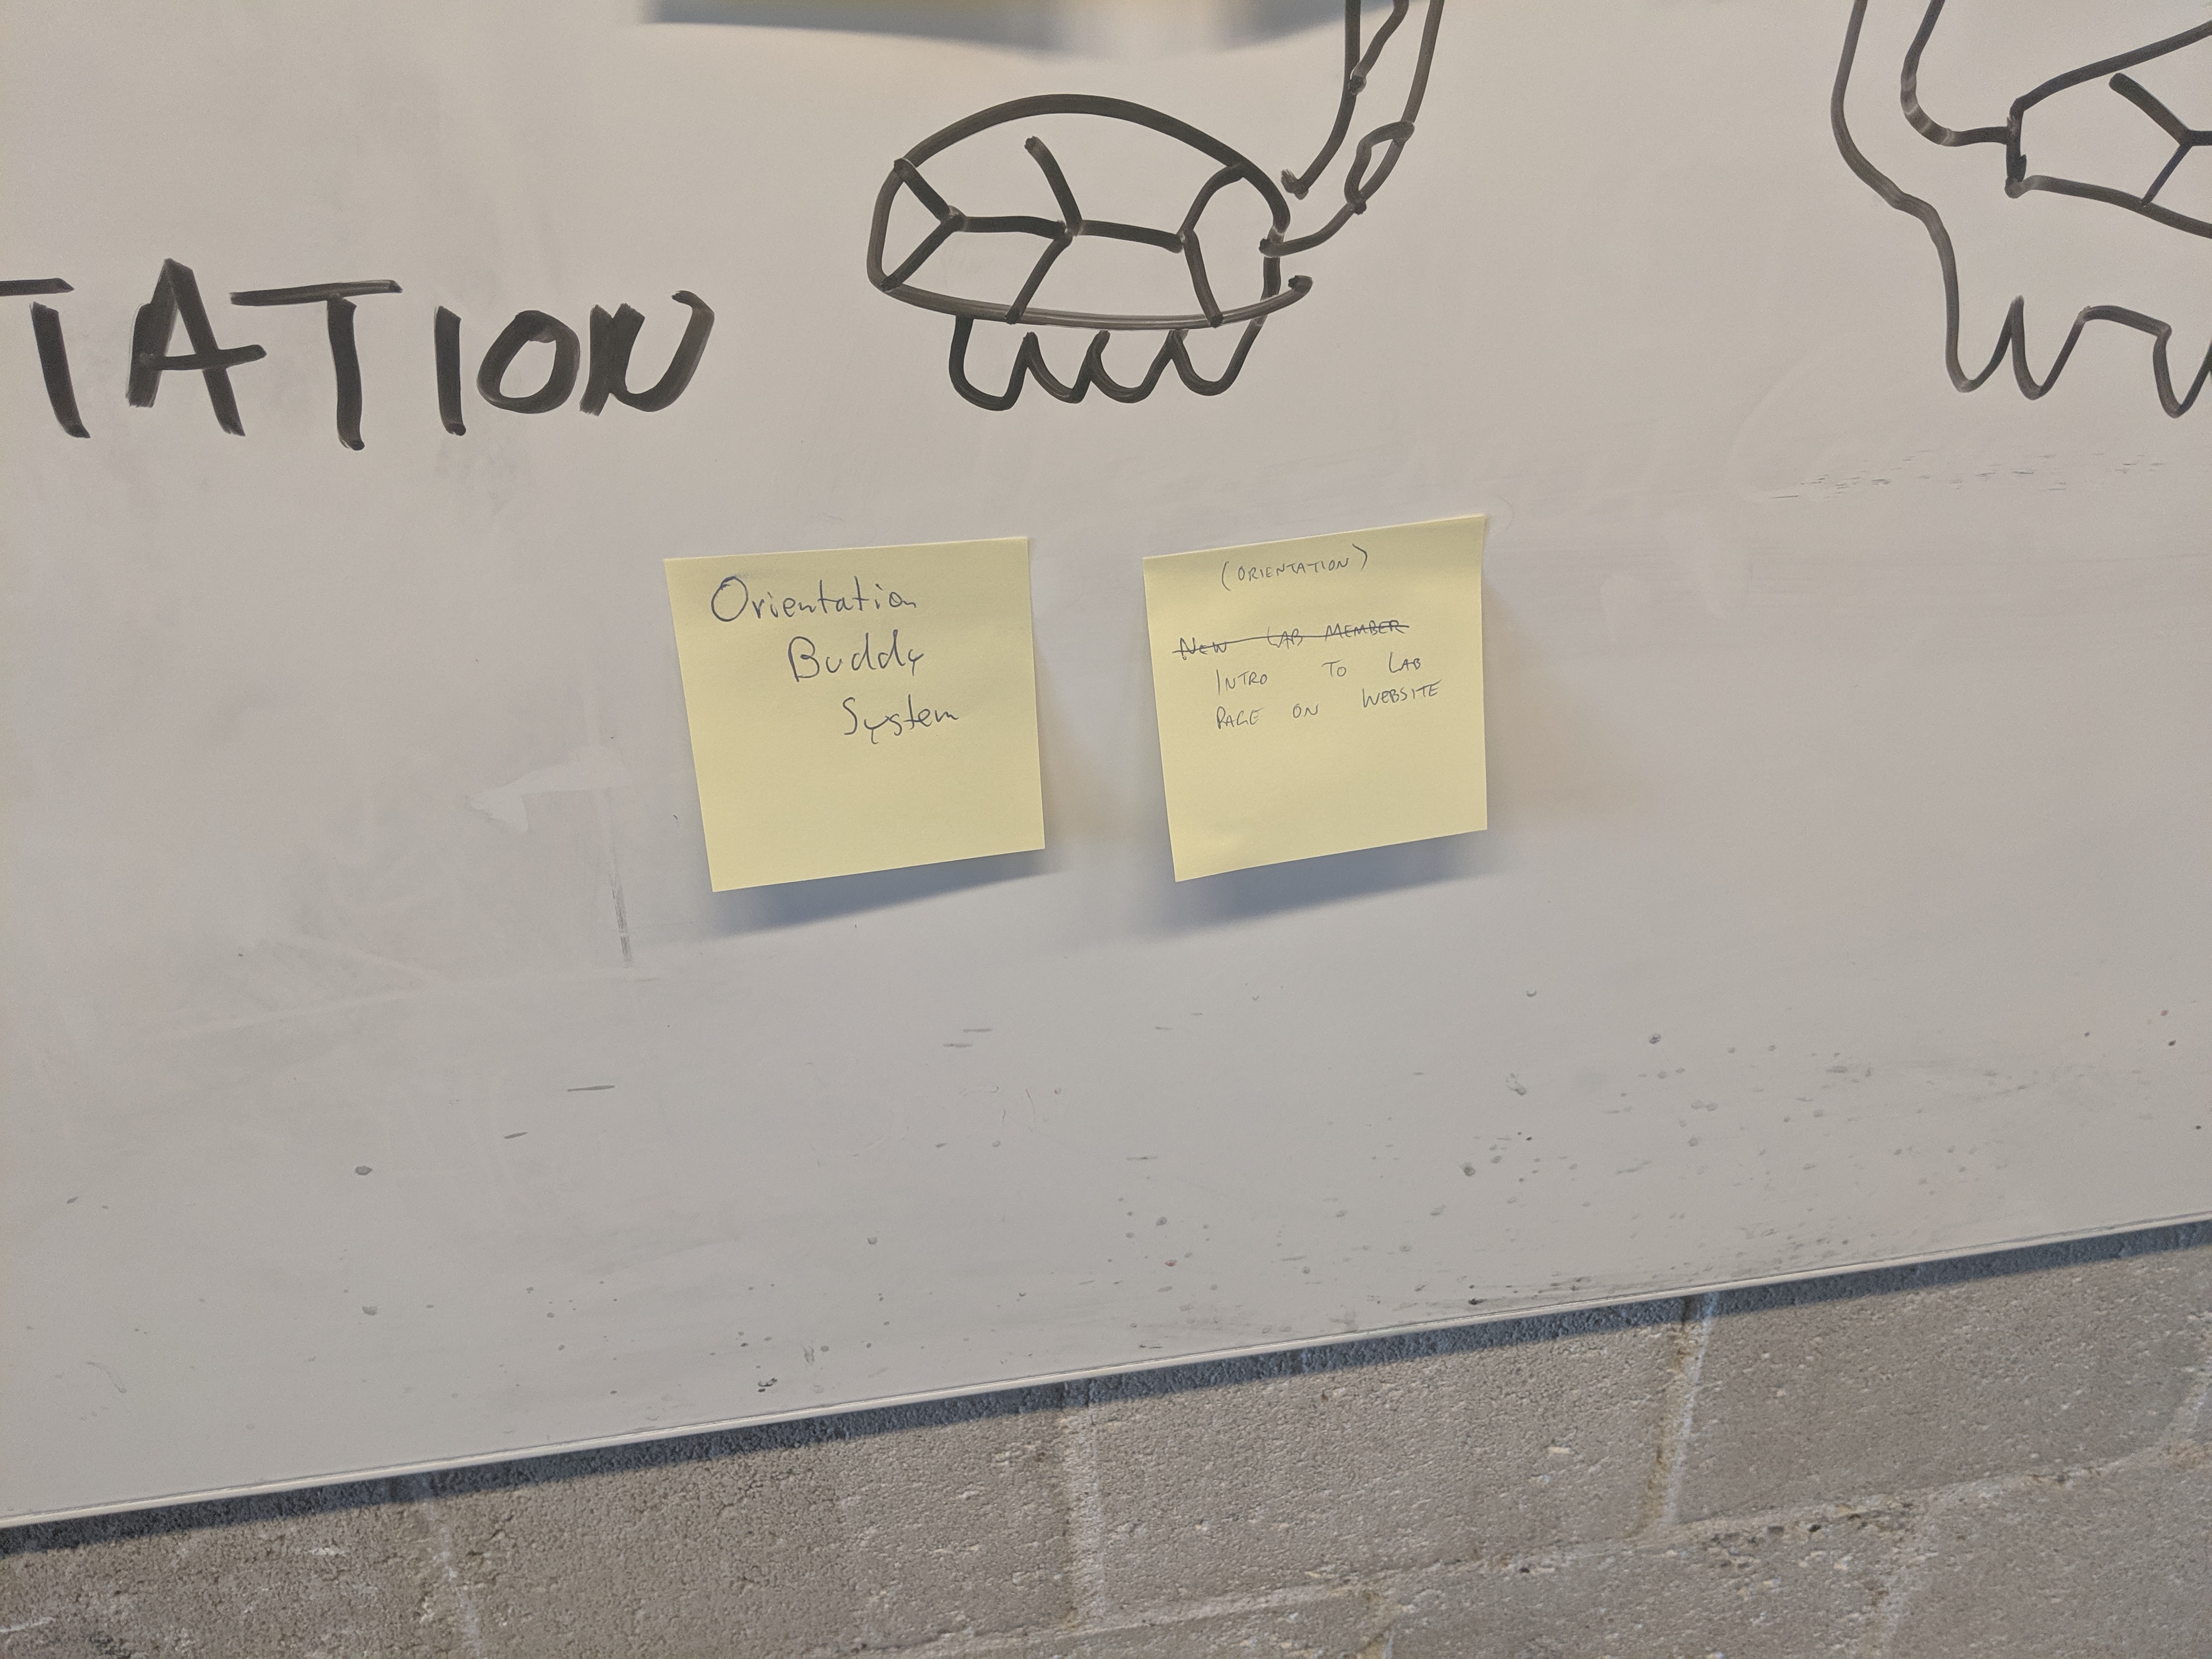 TATION
Orientation
Buddy
System
(ORIENTATION)
NEW LAB MEMBER
INTRO TO LAB
PAGE ON WEBSITE